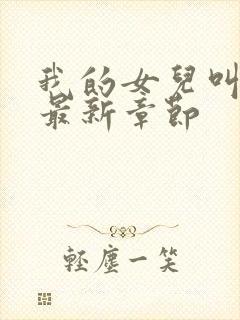 我的女兒叫
最新章節
輕塵一笑